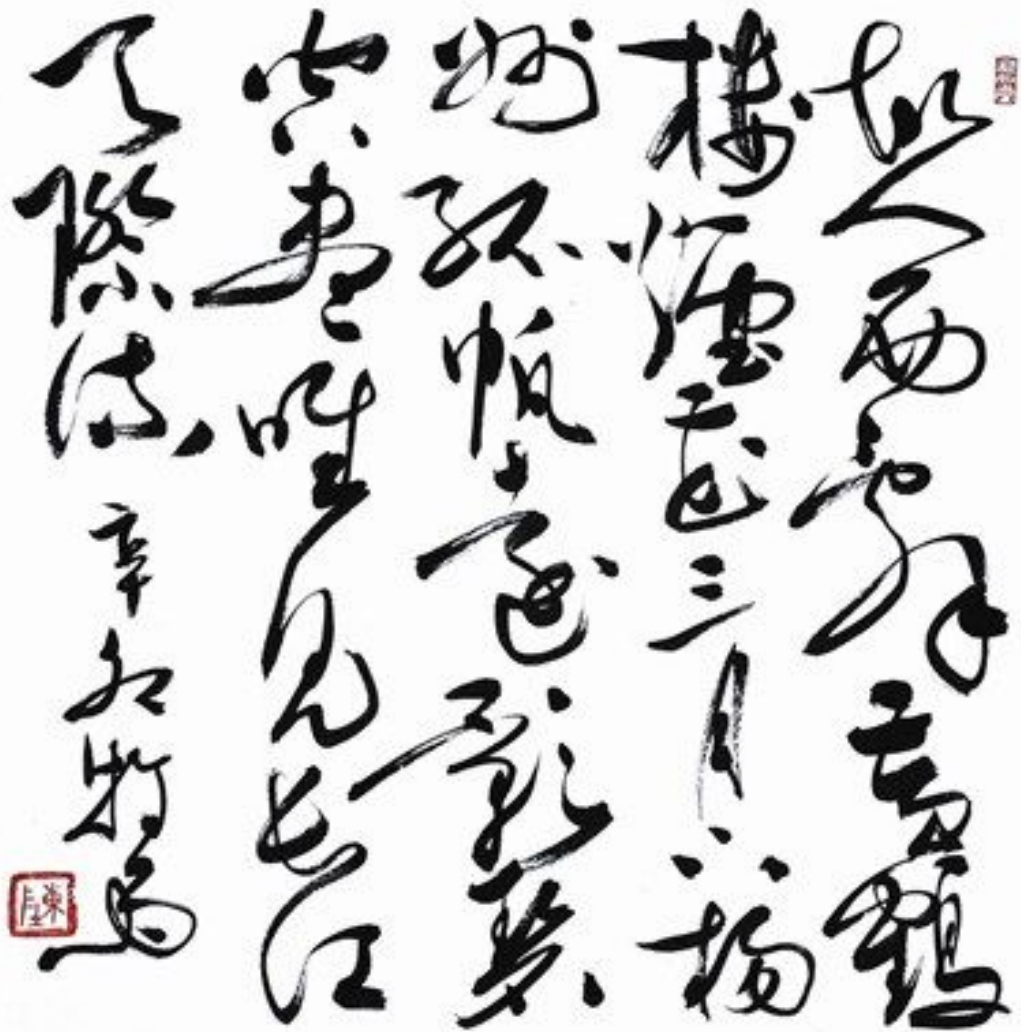 故人西辭黃鶴
樓煙花三月下揚
州孤帆遠影碧
空盡唯見長江
天際流
辛卯